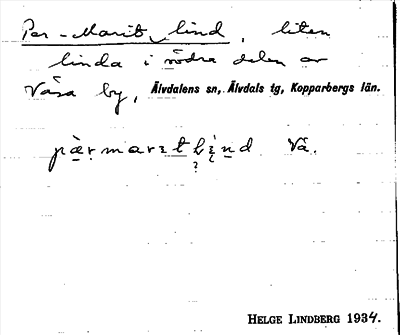 Per-Marit lind, liten
linda i södra delen av
Våsa by, Älvdalens sn, Älvdals tg, Kopparbergs län.
Vå.
HELGE LINDBERG 1934.